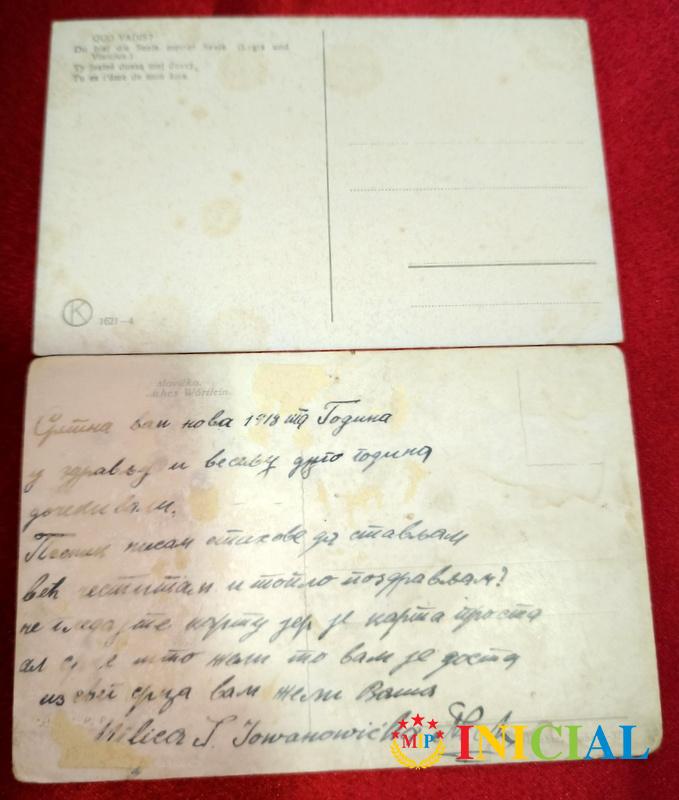 QUO VADIS?
Du bist die Seele meiner Seele (Lygia und
Vinicius.)
Ty jesteś duszą mej duszy.
Tu es l'âme de mon âme
K
1621—4
slovíčko.
ches Wörtlein.
вам нова 1918 та Година
у здрављу и весељу дуго година
дочекивали.
нисам стихове да стављам
већ честитам и топло поздрављам?
не гледајте карту јер је карта проста
ал што жели то вам је доста
из свег срца вам жели Ваша
Milica S. Jowanowićka
MIP INICIAL